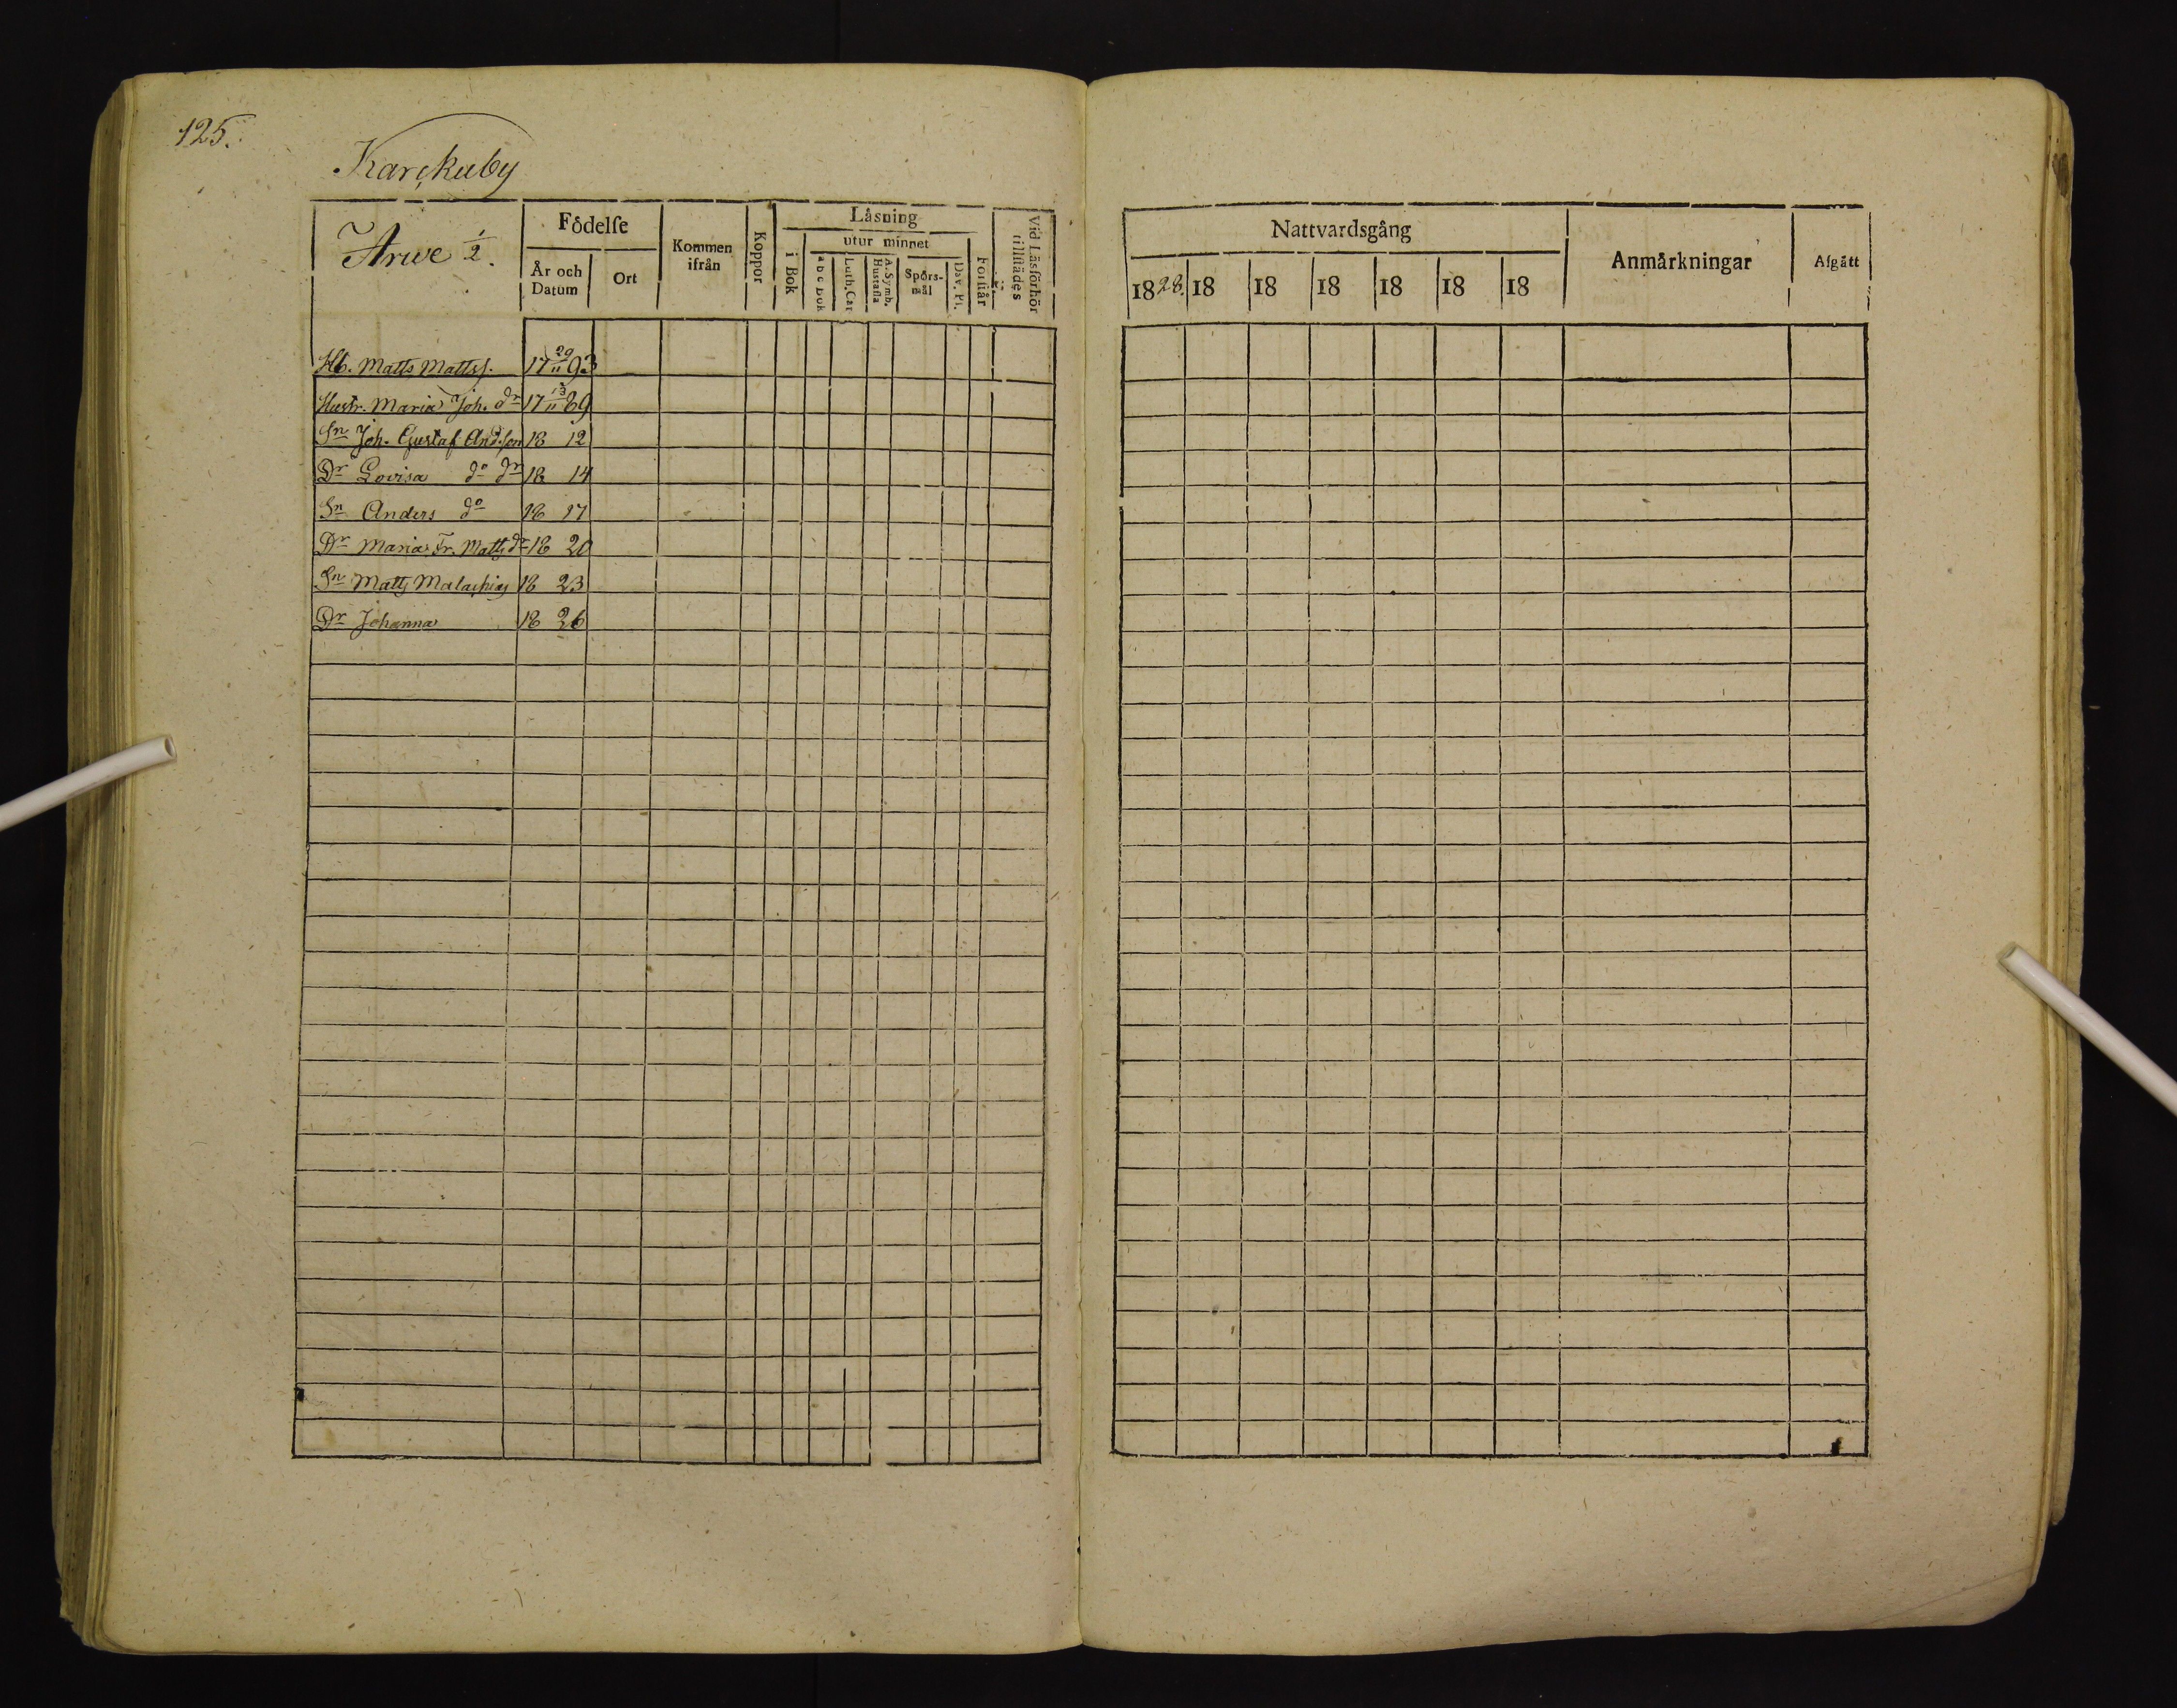 125.
Karskuby
Arwe 1/2.
Födelse
År och Datum
Ort
Kommen ifrån
Koppor
Läsning
i Bok
utur minnet
a b c bok
Luth. Cat
A. Symb. Hustafla
Spörs-mål
Dav. Ps.
Förstår
Vid Läsförhör tillstädes
Hb. Matts Mattss. 17 29/11 93
Hustr. Maria Joh. dr 17 13/11 89
Sn Joh. Gustaf And.son 18 12
Dr Lovisa do dr 18 14
Sn Anders do 18 17
Dr Maria Fr. Matts dr 18 20
Sn Matts Malachias 18 23
Dr Johanna 18 26
Nattvardsgång
1828. 18 18 18 18 18 18
Anmärkningar
Afgått